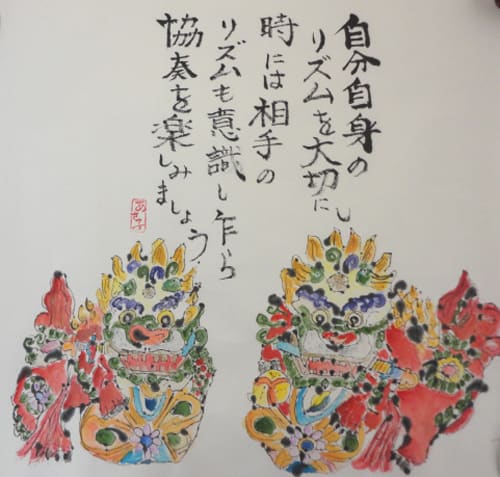 自分自身の
リズムを大切にし
時には相手の
リズムも意識し乍ら
協奏を楽しみましょう